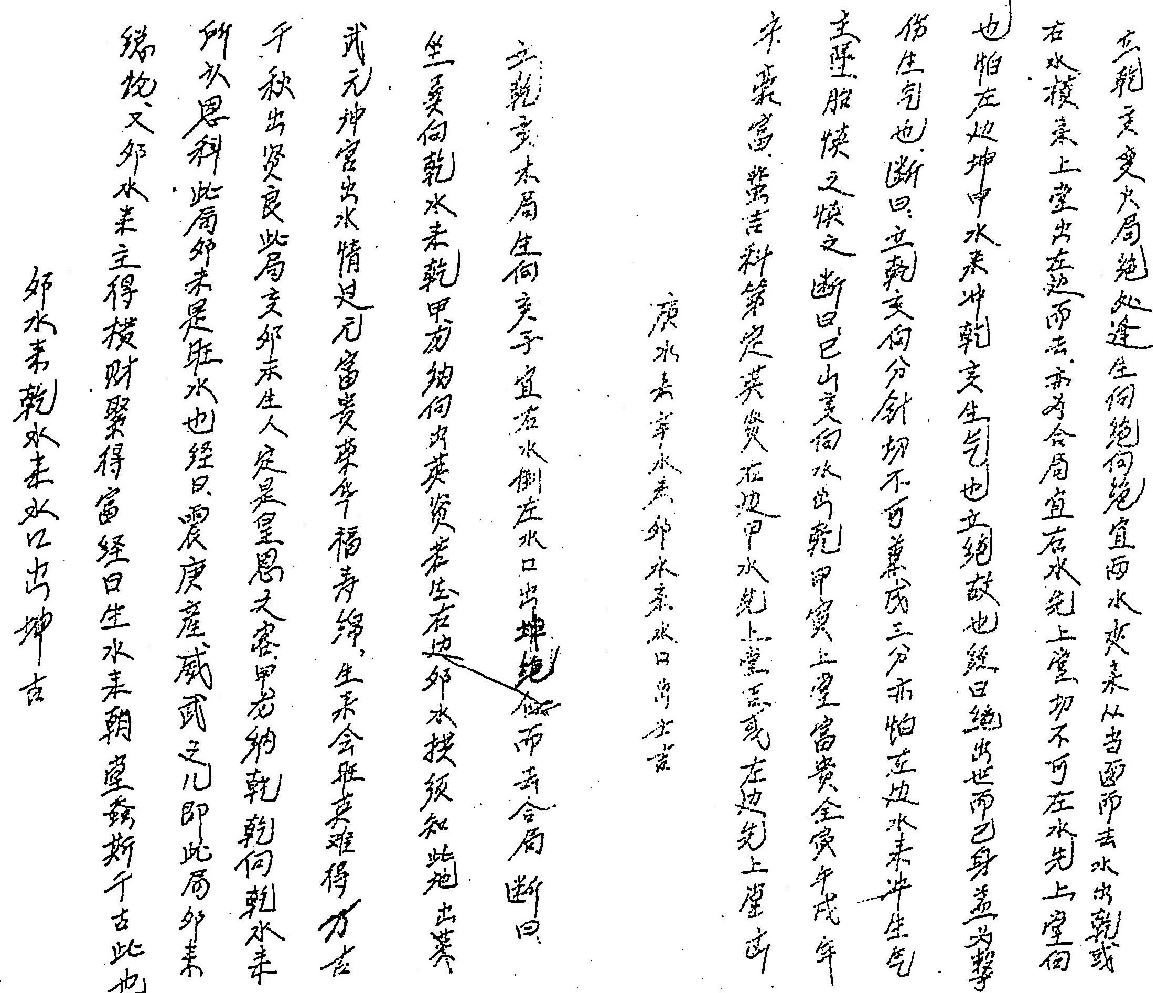 立乾亥变火局绝处逢生向绝向绝宜两水夹来从当面而去水出乾或
右水横来上堂出左边而去亦为合局宜右水先上堂切不可左水先上堂向
也怕左边坤申水来冲乾亥生气也立绝故也经曰绝出世而已身盖为
伤生气也断曰立乾亥向分针切不可兼戌三分亦怕左边水来冲生气
主坠胎慎之慎之断曰巳山亥向水出乾甲寅上堂富贵全寅午戌年
来富蜚吉科第定英贤右边甲水先上堂左边先上堂
庚水去辛水来卯水来水口出
立乾亥木局生向亥子宜右水倒左水口出坤绝位而去合局断曰
坐巽向乾水来乾甲龙纳向出英贤若生右边卯水拱须知此地出英
武元坤宫出水情过元富贵荣华福寿绵生来会旺英难得方吉
千秋出贤良此局亥卯未生人定是皇恩大客甲龙纳乾乾向乾水来
所以恩科此局卯未是旺水也经曰震庚产威武之儿即此局卯来
缘故又卯水来主得横财聚得富经曰生水来朝堂螽斯千古此也
卯水来乾水来水口出坤吉